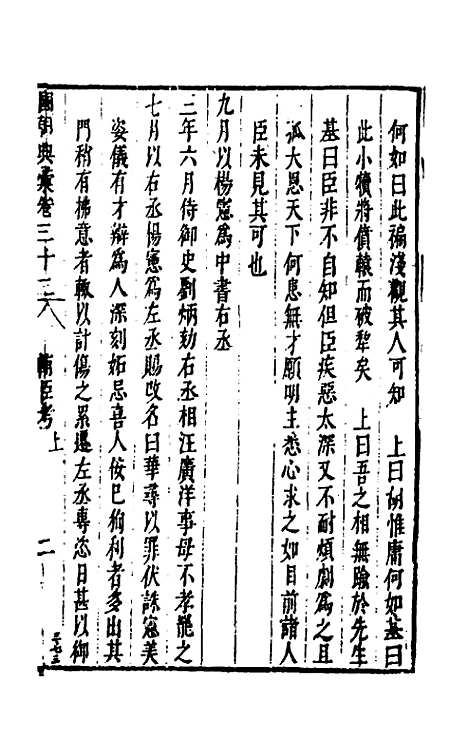 何如曰此褊淺觀其人可知　上曰胡惟庸何如基曰
此小犢將僨轅而破犁矣　上曰吾之相無踰於先生
基曰臣非不自知但臣疾惡太深又不耐煩劇為之且
孤大恩天下何患無才願明主悉心求之如目前諸人
臣未見其可也
九月以楊憲為中書右丞
三年六月侍御史劉炳劾右丞相汪廣洋事母不孝罷之
七月以右丞楊憲為左丞賜改名曰華尋以罪伏誅憲美
姿儀有才辯為人深刻妬忌喜人佞已徇利者多出其
門稍有拂意者輒以計傷之累遷左丞專恣日甚以御
國朝典彙卷三十三　輔臣考上　二